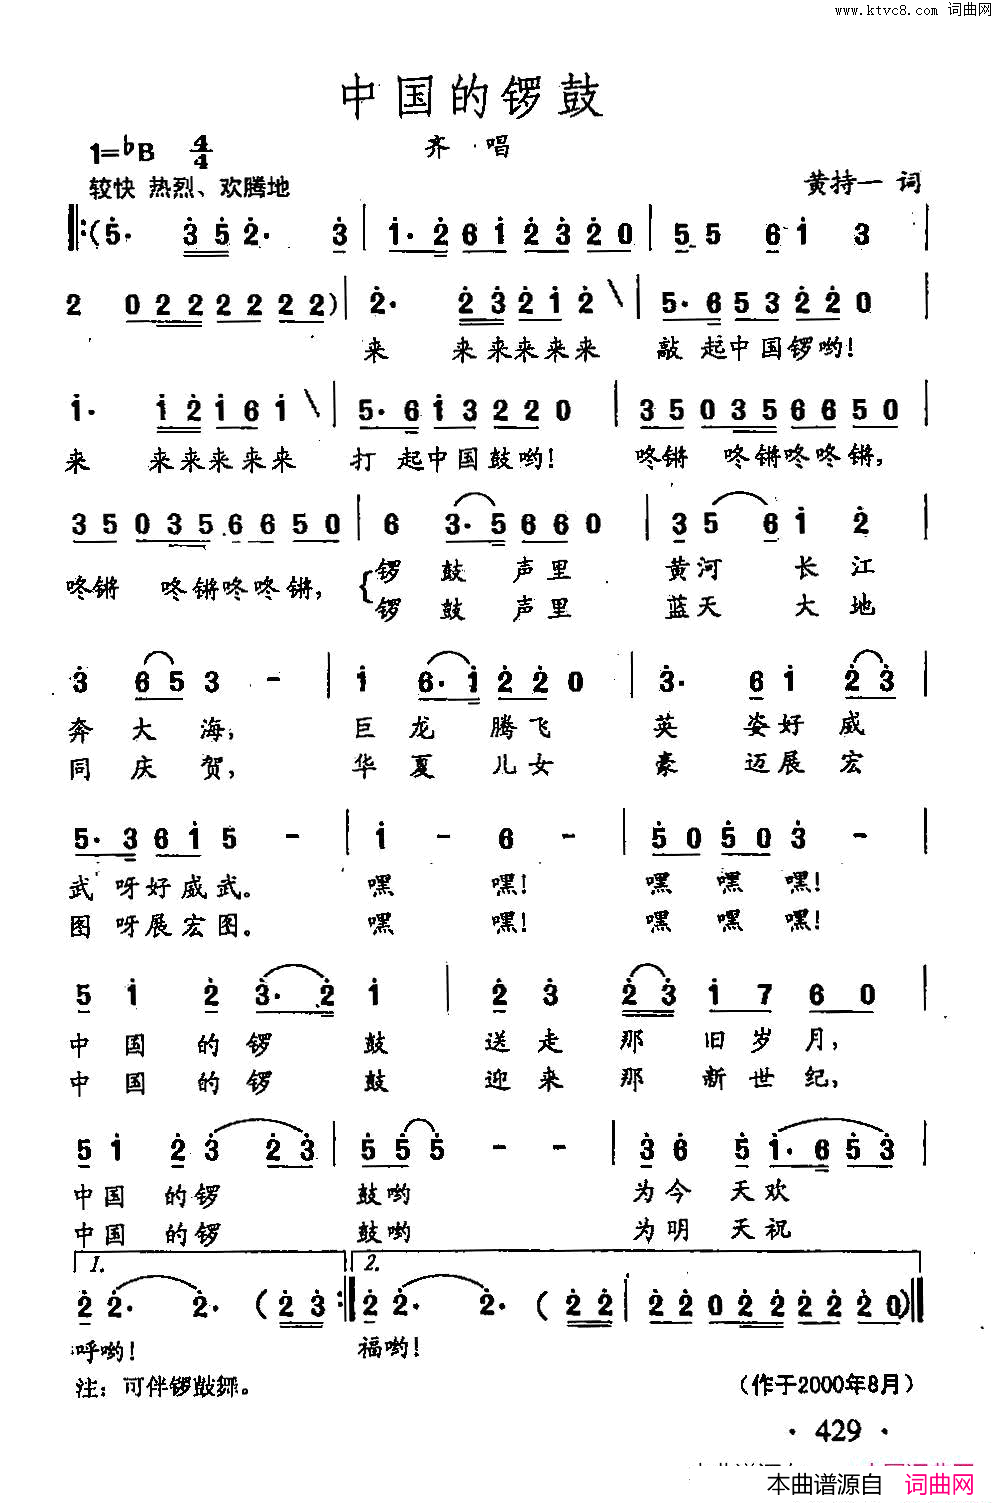 www.ktvc8.com 词曲网
中国的锣鼓
齐 唱
1=♭B 4/4
较快 热烈、欢腾地
黄持一 词
‖:(5· 35 2· 3 | 1·2 61 23 20 | 5 5 6 1 3 |
2 0222 2222) | 2· 23 21 2 \ | 5·6 53 22 0 |
来 来来来来来 敲起中国锣哟!
1· 12 16 1 \ | 5·6 13 22 0 | 35 035 66 50 |
来 来来来来来 打起中国鼓哟! 咚锵 咚锵咚咚锵,
35 035 66 50 | 6 3·5 66 0 | 3 5 6 1 2 |
咚锵 咚锵咚咚锵, 锣鼓声里 黄河长江
锣鼓声里 蓝天大地
3 65 3 - | 1 6·1 22 0 | 3· 6 1 23 |
奔大海; 巨龙腾飞 英姿好威
同庆贺, 华夏儿女 豪迈展宏
5·3 61 5 - | 1 - 6 - | 50 50 3 - |
武呀好威武。 嘿 嘿! 嘿 嘿 嘿!
图呀展宏图。 嘿 嘿! 嘿 嘿 嘿!
5 1 2 3·2 1 | 2 3 23 17 60 |
中国的锣鼓 送走那旧岁月,
中国的锣鼓 迎来那新世纪,
5 1 2 3 23 | 55 5 - - | 3 6 5 1·6 53 |
中国的锣 鼓哟 为今天欢
中国的锣 鼓哟 为明天祝
1. 2.
2 2· 2· (23 :‖ 2 2· 2· (22 | 22 022 2222 0)‖
呼哟! 福哟!
注: 可伴锣鼓舞。
(作于2000年8月)
· 429 ·
本曲谱源自 词曲网